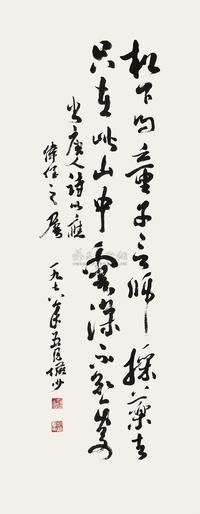 松下问童子言师採药去
只在此山中云深不知处
书唐人诗以应
伟仔之属
一九七八年五月